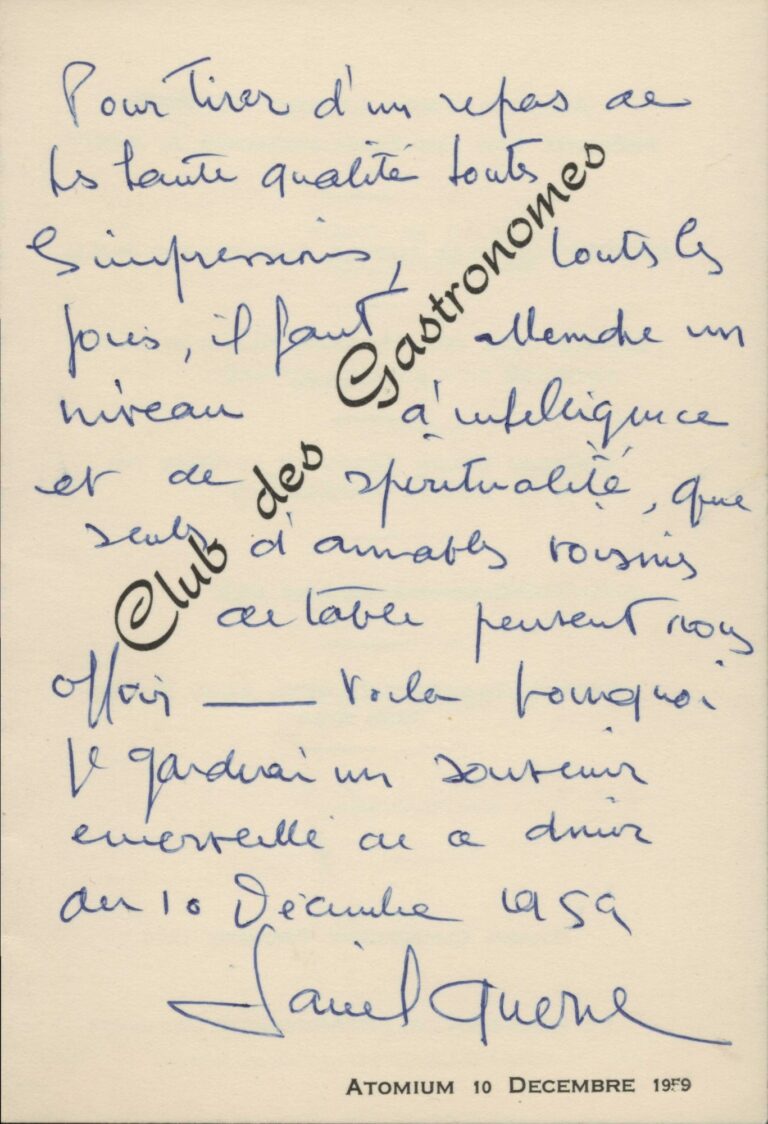 Pour tirer d'un repas de
très haute qualité toutes
les impressions, toutes les
joies, il faut attendre un
niveau d'intelligence
et de spiritualité, que
seuls d'aimables voisins
de table peuvent nous
offrir — Voilà pourquoi
je garderai un souvenir
émerveillé de ce diner
du 10 Décembre 1959
Club des Gastronomes
ATOMIUM 10 DECEMBRE 1959